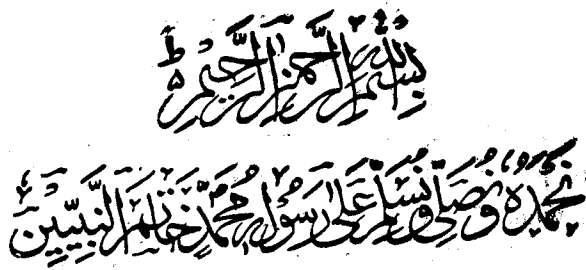 بِسْمِ اللهِ الرَّحْمٰنِ الرَّحِيْمِ ط
نَحْمَدُهٗ وَنُصَلِّىْ وَنُسَلِّمُ عَلٰى رَسُوْلِهٖ مُحَمَّدٍ خَاتَمِ النَّبِيِّيْنَ